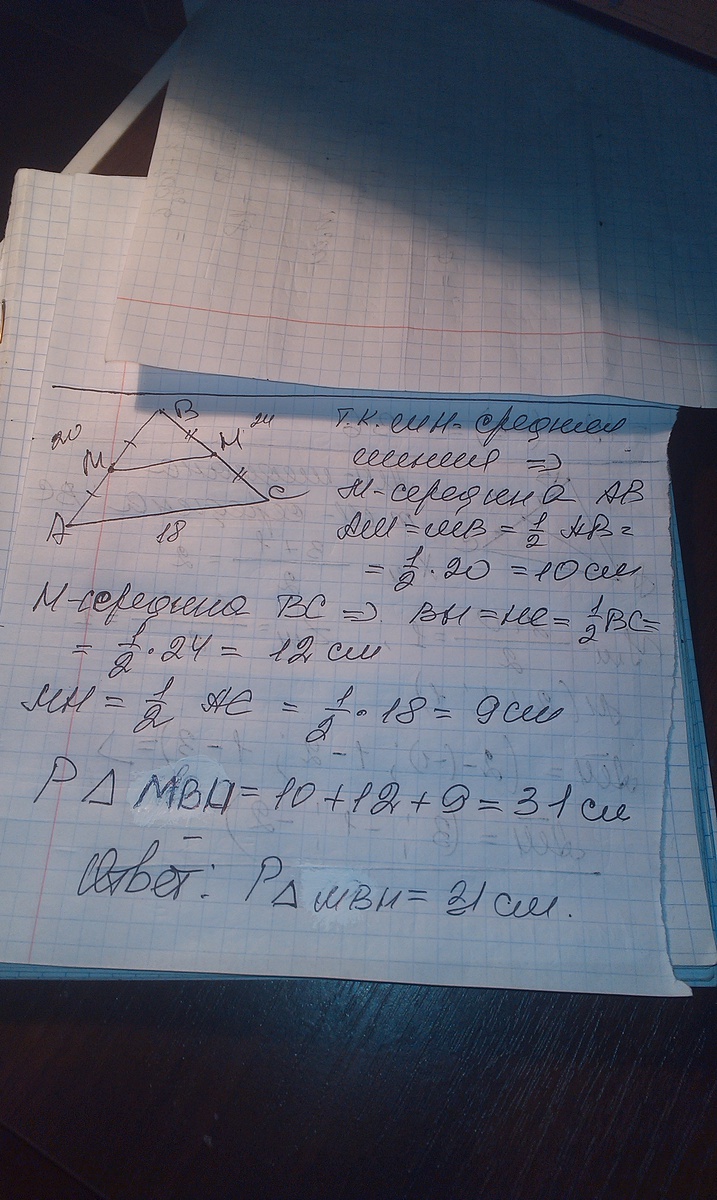 B
20
24
M
H
C
A
18
Т.К. MH-средняя
линия ⇒
M-середина AB
AM = MB = 1/2 AB =
= 1/2 · 20 = 10 см
H-середина BC ⇒ BH = HC = 1/2 BC =
= 1/2 · 24 = 12 см
MH = 1/2 AC = 1/2 · 18 = 9 см
P△ MBH = 10 + 12 + 9 = 31 см
Ответ: P△ MBH = 31 см.